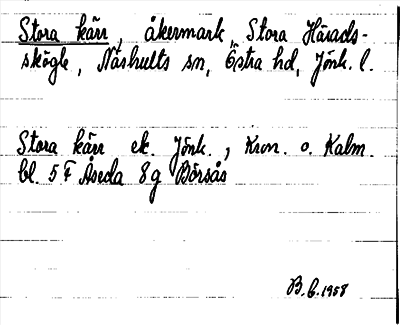 Stora kärr, åkermark, Stora Härads-
skögle, Näshults sn, Östra hd, Jönk. l.
Stora kärr ek. Jönk., Kron. o. Kalm.
bl. 5 F Åseda 8 g Börsås
B. G. 1958